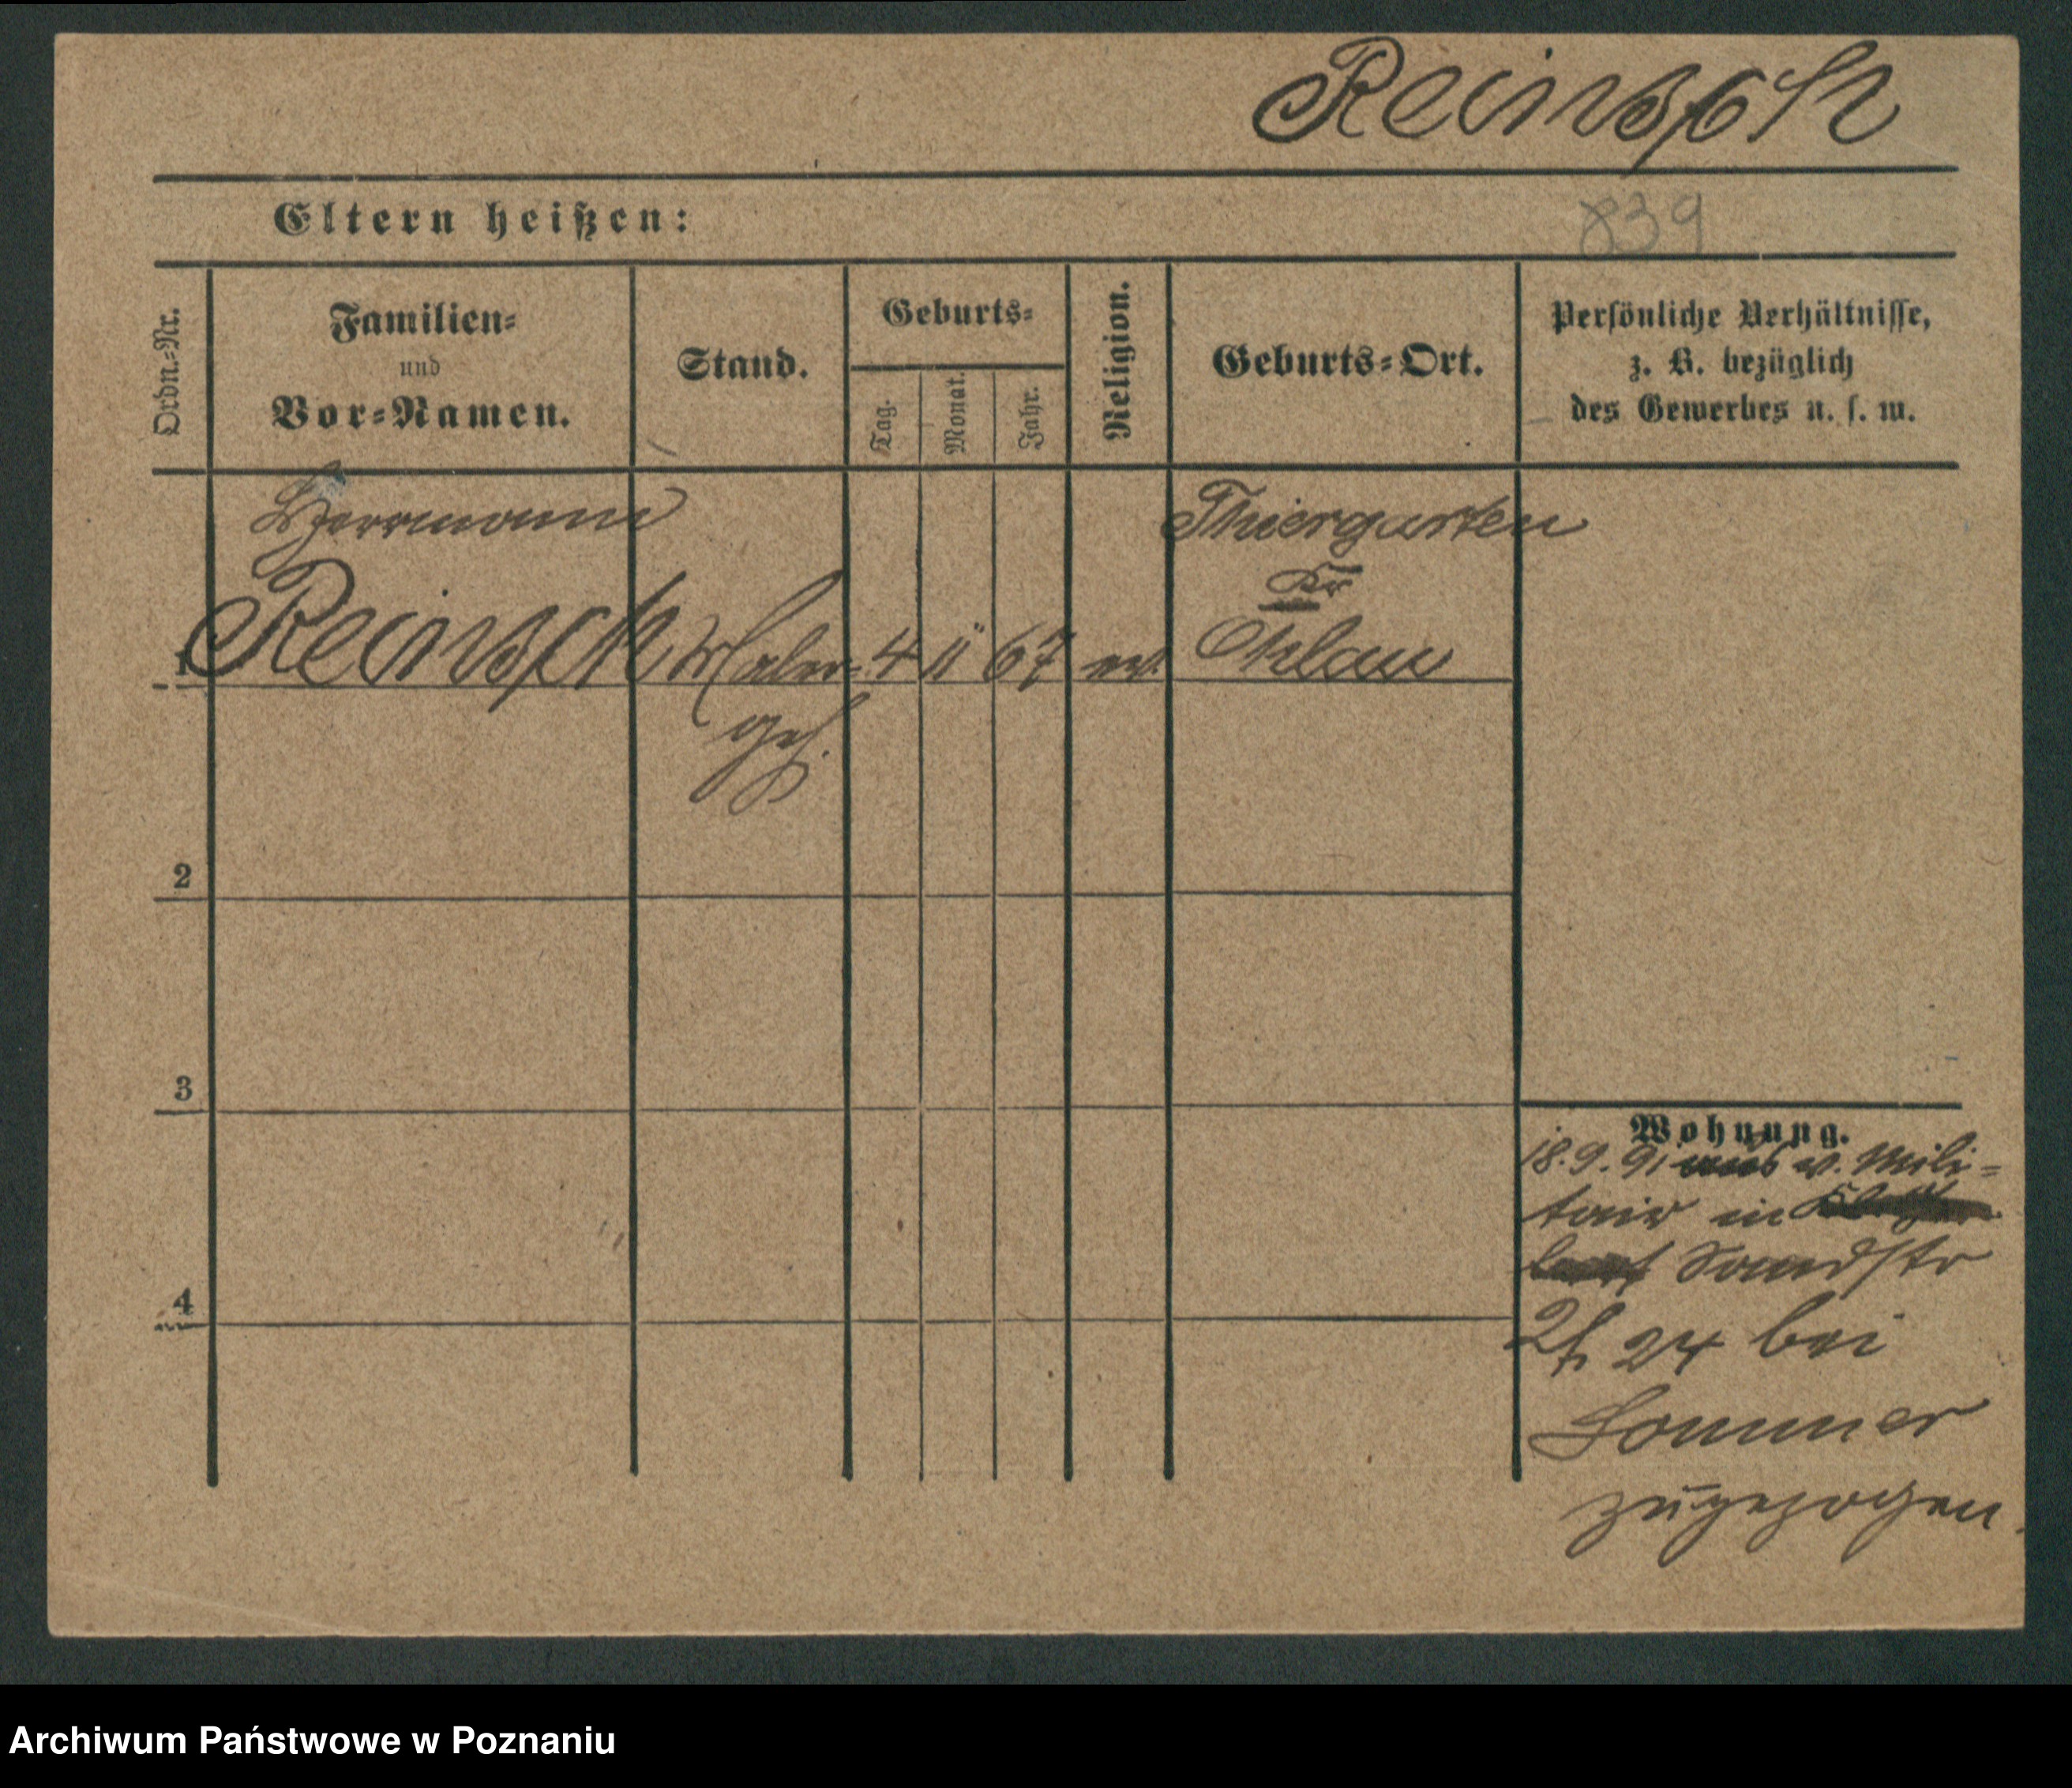 Reinsch
Eltern heißen:
839
Ordn.=Nr.
Familien=
und
Vor=Namen.
Stand.
Geburts=
Tag.
Monat.
Jahr.
Religion.
Geburts=Ort.
Persönliche Verhältnisse,
z. B. bezüglich
des Gewerbes u. s. w.
Herrmann
Thiergarten
Kr
1 Reinsch Maler= 4 11 67 ev. Ohlau
geh.
2
3
4
Wohnung.
18.9.91 aus v. Mili=
tair in
Sandstr
24 bei
Sommer
zugezogen.
Archiwum Państwowe w Poznaniu